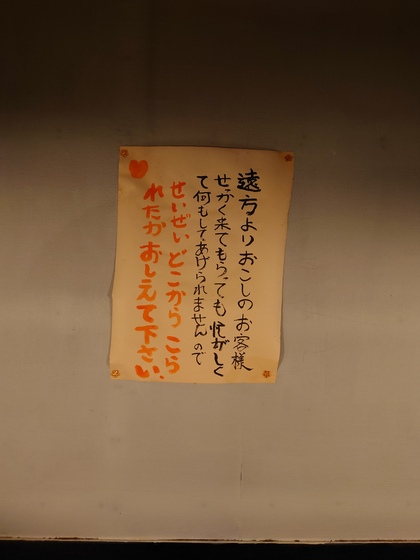 遠方よりおこしのお客様
せかく来てもらっても忙がしく
て何もしてあげられませんので
せいぜいどこからこら
れたかおしえて下さい